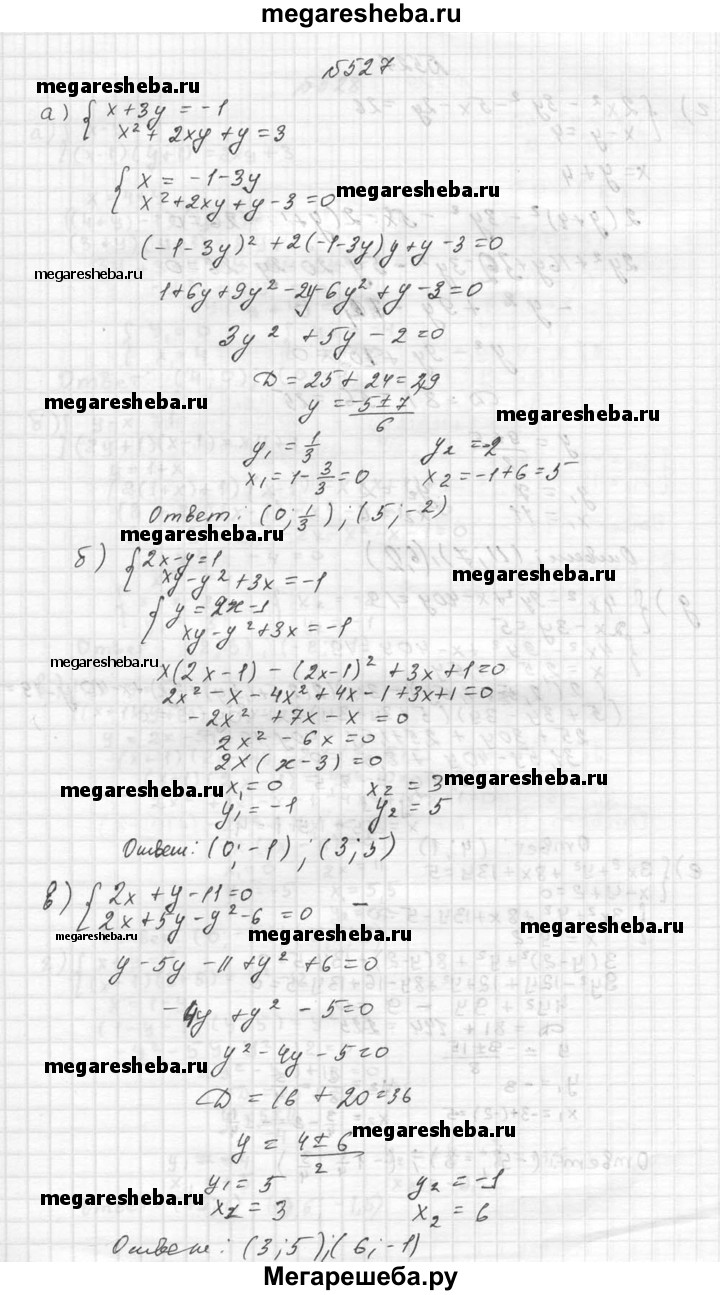 megaresheba.ru
№527
megaresheba.ru
а) { x+3y = -1
x² + 2xy + y = 3
{ x = -1-3y megaresheba.ru
x² + 2xy + y - 3 = 0
(-1-3y)² + 2(-1-3y)y + y - 3 = 0
megaresheba.ru
1+6y+9y²-2y-6y²+y-3=0
3y² + 5y - 2 = 0
D = 25+24=29
megaresheba.ru
y = -5±7/6 megaresheba.ru
y₁ = 1/3 y₂ = -2
x₁ = 1 - 3/3 = 0 x₂ = -1+6=5
Ответ: (0; 1/3); (5; -2)
megaresheba.ru
б) { 2x-y=1
xy-y²+3x=-1 megaresheba.ru
{ y=2x-1
xy-y²+3x=-1
megaresheba.ru
x(2x-1) - (2x-1)² + 3x+1=0
2x² - x - 4x² + 4x - 1 + 3x+1=0
-2x² + 7x - x = 0
2x² - 6x = 0
2x(x-3) = 0
megaresheba.ru x₁=0 x₂ = 3 megaresheba.ru
y₁ = -1 y₂ = 5
Ответ: (0; -1); (3; 5)
в) { 2x + y - 11 = 0
2x + 5y - y² - 6 = 0 -
megaresheba.ru megaresheba.ru megaresheba.ru
y - 5y - 11 + y² + 6 = 0
-4y + y² - 5 = 0
y² - 4y - 5 = 0
megaresheba.ru
D = 16 + 20 = 36
y = 4±6/2 megaresheba.ru
y₁ = 5 y₂ = -1
megaresheba.ru x₂ = 3 x₂ = 6
Ответ: (3; 5); (6; -1)
Мегарешеба.ру